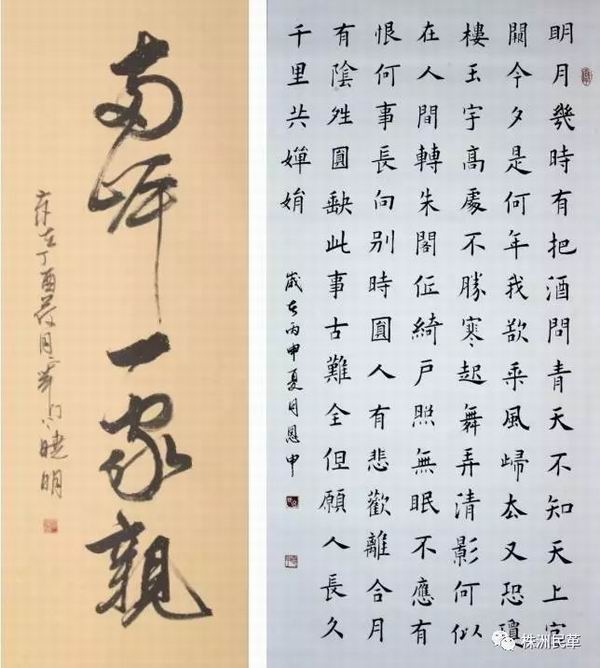 兩岸一家親
歲在丁酉月曉明
明月幾時有把酒問青天不知天上宮
闕今夕是何年我欲乘風歸去又恐瓊
樓玉宇高處不勝寒起舞弄清影何似
在人間轉朱閣低綺戶照無眠不應有
恨何事長向別時圓人有悲歡離合月
有陰晴圓缺此事古難全但願人長久
千里共嬋娟
歲在丙申夏月恩申
株洲民革